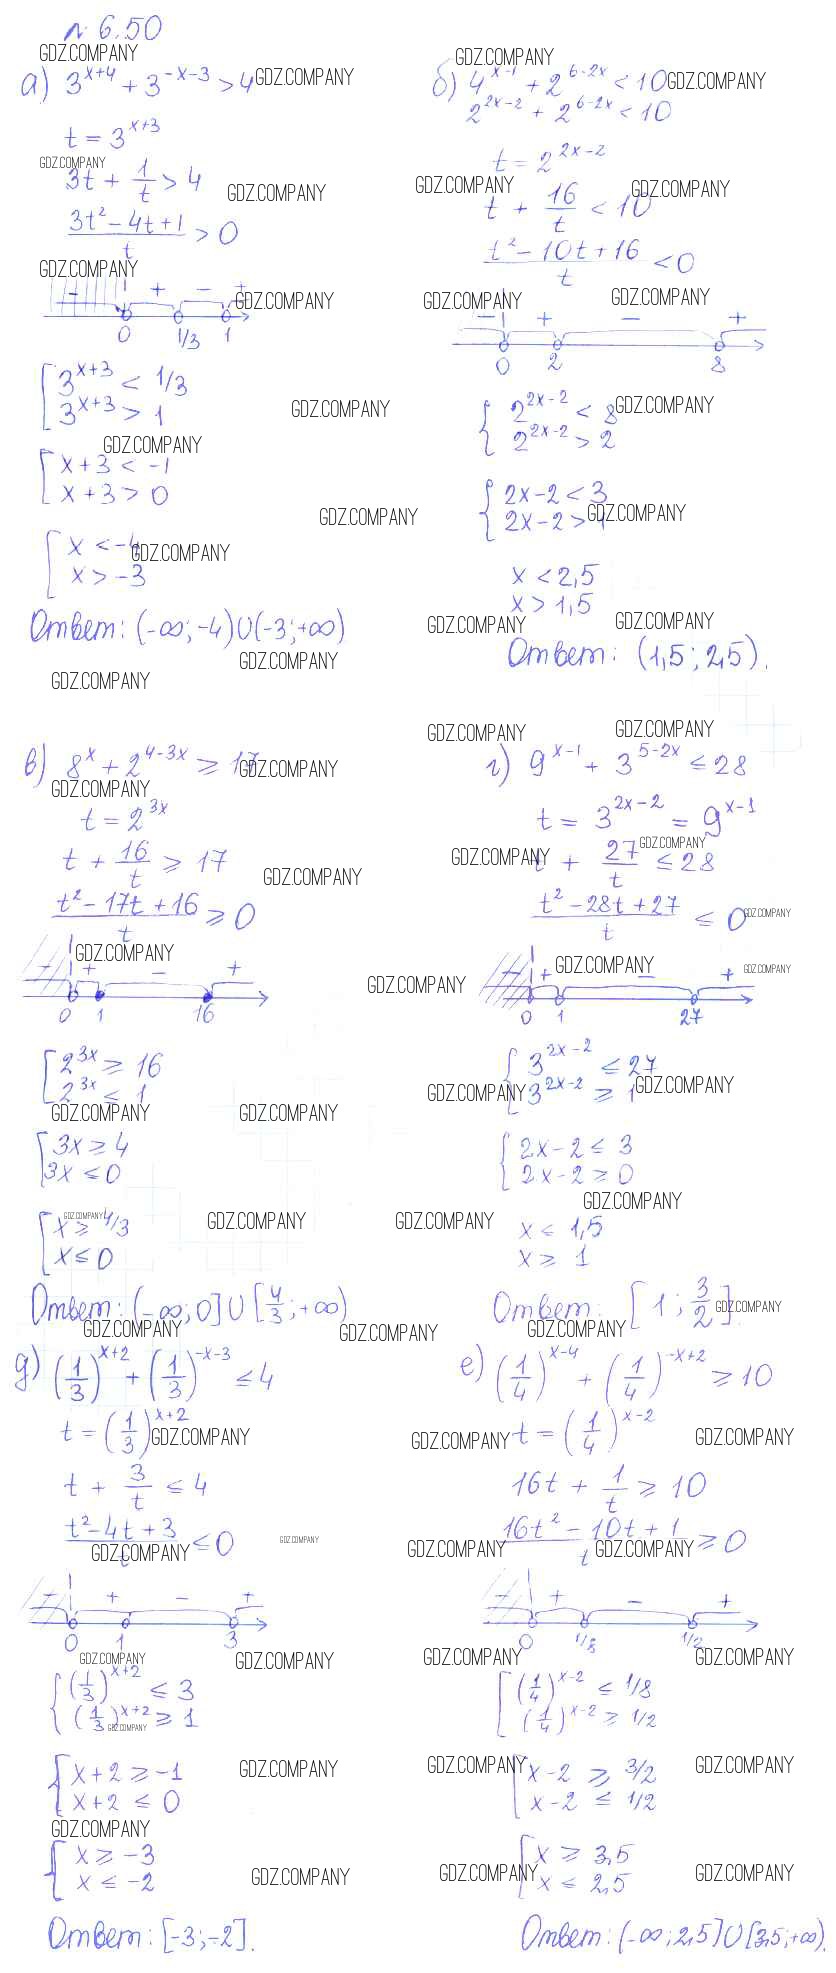 № 6.50
а) 3^{x+4} + 3^{-x-3} > 4
t = 3^{x+3}
3t + 1/t > 4
(3t² - 4t + 1)/t > 0
- + - +
0 1/3 1
[ 3^{x+3} < 1/3
3^{x+3} > 1
[ x + 3 < -1
x + 3 > 0
[ x < -4
x > -3
Ответ: (-∞; -4) ∪ (-3; +∞)
б) 4^{x-1} + 2^{6-2x} < 10
2^{2x-2} + 2^{6-2x} < 10
t = 2^{2x-2}
t + 16/t < 10
(t² - 10t + 16)/t < 0
- + - +
0 2 8
{ 2^{2x-2} < 8
2^{2x-2} > 2
{ 2x - 2 < 3
2x - 2 > 1
x < 2,5
x > 1,5
Ответ: (1,5; 2,5).
в) 8^x + 2^{4-3x} ≥ 17
t = 2^{3x}
t + 16/t ≥ 17
(t² - 17t + 16)/t ≥ 0
- + - +
0 1 16
[ 2^{3x} ≥ 16
2^{3x} ≤ 1
[ 3x ≥ 4
3x ≤ 0
[ x ≥ 4/3
x ≤ 0
Ответ: (-∞; 0] ∪ [4/3; +∞)
г) 9^{x-1} + 3^{5-2x} ≤ 28
t = 3^{2x-2} = 9^{x-1}
t + 27/t ≤ 28
(t² - 28t + 27)/t ≤ 0
- + - +
0 1 27
{ 3^{2x-2} ≤ 27
3^{2x-2} ≥ 1
{ 2x - 2 ≤ 3
2x - 2 ≥ 0
x ≤ 1,5
x ≥ 1
Ответ: [1; 3/2].
д) (1/3)^{x+2} + (1/3)^{-x-3} ≤ 4
t = (1/3)^{x+2}
t + 3/t ≤ 4
(t² - 4t + 3)/t ≤ 0
- + - +
0 1 3
{ (1/3)^{x+2} ≤ 3
(1/3)^{x+2} ≥ 1
{ x + 2 ≥ -1
x + 2 ≤ 0
{ x ≥ -3
x ≤ -2
Ответ: [-3; -2].
е) (1/4)^{x-4} + (1/4)^{-x+2} ≥ 10
t = (1/4)^{x-2}
16t + 1/t ≥ 10
(16t² - 10t + 1)/t ≥ 0
- + - +
0 1/8 1/2
[ (1/4)^{x-2} ≤ 1/8
(1/4)^{x-2} ≥ 1/2
[ x - 2 ≥ 3/2
x - 2 ≤ 1/2
[ x ≥ 3,5
x ≤ 2,5
Ответ: (-∞; 2,5] ∪ [3,5; +∞).
GDZ.COMPANY